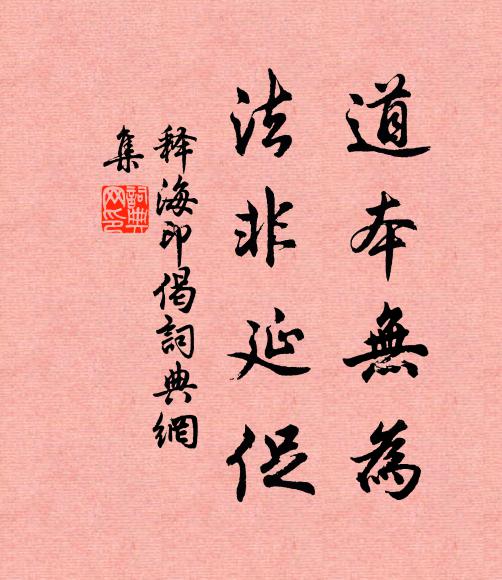 道本無為
法非延促
释海印偈詞典網
集
詞典
网印